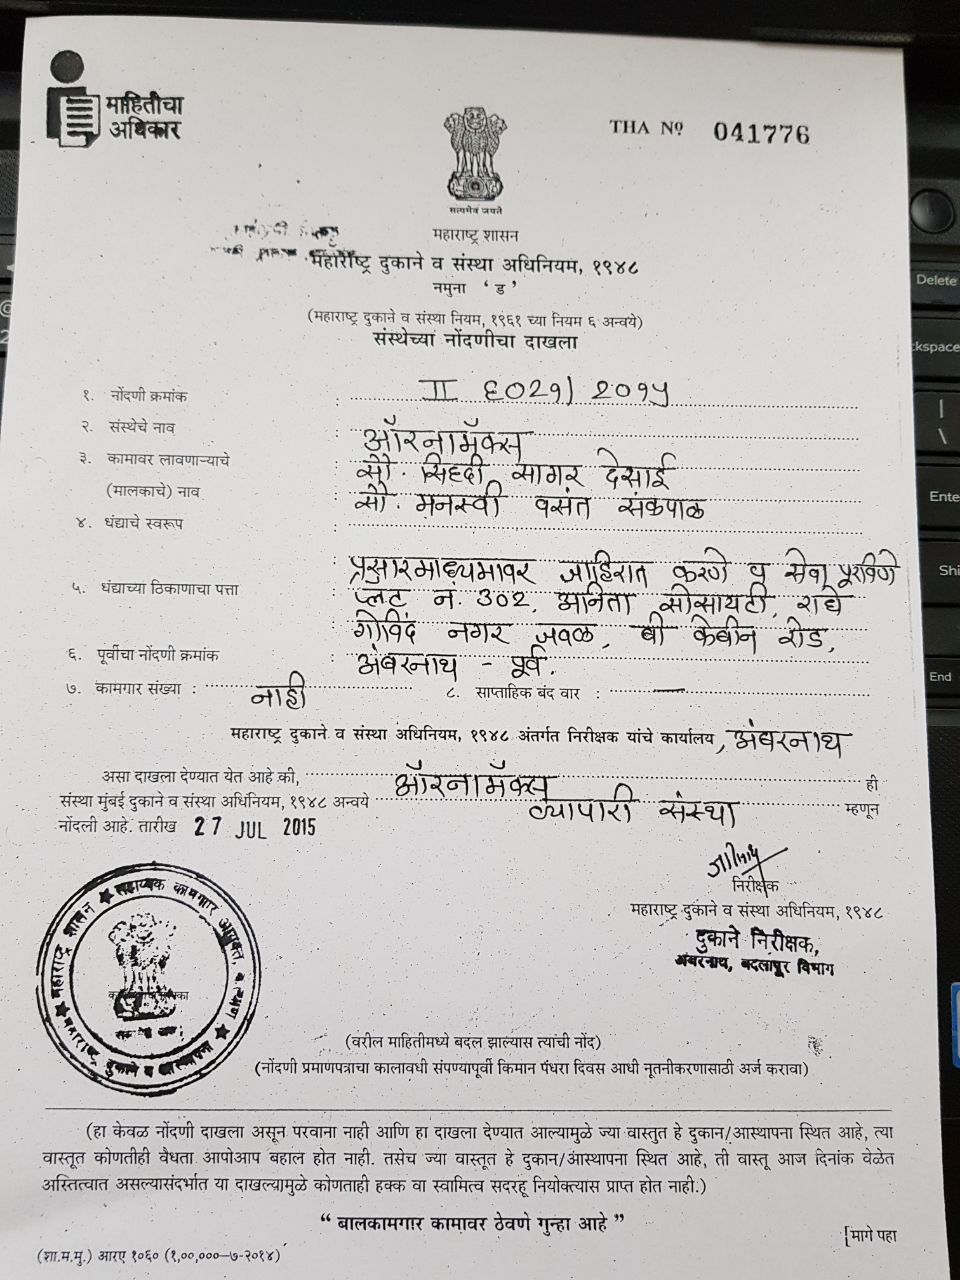 माहितीचा
अधिकार
THA Nº 041776
सत्यमेव जयते
महाराष्ट्र शासन
महाराष्ट्र दुकाने व संस्था अधिनियम, १९४८
नमुना ‘ड’
(महाराष्ट्र दुकाने व संस्था नियम, १९६१ च्या नियम ६ अन्वये)
संस्थेच्या नोंदणीचा दाखला
१. नोंदणी क्रमांक : II ६०२१/२०१५
२. संस्थेचे नाव : ऑरनामॅक्स
३. कामावर लावणाऱ्याचे : सौ. सिद्दी सागर देसाई
(मालकाचे) नाव : सौ. मनस्वी वसंत संकपाळ
४. धंद्याचे स्वरूप :
प्रसारमाध्यमावर जाहिरात करणे व सेवा पूरविणे
५. धंद्याच्या ठिकाणाचा पत्ता : प्लट न. ३०२, अनिता सोसायटी, राधे
गोविंद नगर जवळ, बी केबीन रोड,
६. पूर्वीचा नोंदणी क्रमांक : अंबरनाथ - पूर्व.
७. कामगार संख्या : नाही ८. साप्ताहिक बंद वार : —
महाराष्ट्र दुकाने व संस्था अधिनियम, १९४८ अंतर्गत निरीक्षक यांचे कार्यालय, अंबरनाथ
असा दाखला देण्यात येत आहे की, ऑरनामॅक्स ही
संस्था मुंबई दुकाने व संस्था अधिनियम, १९४८ अन्वये व्यापारी संस्था म्हणून
नोंदली आहे. तारीख 27 JUL 2015
निरीक्षक
महाराष्ट्र दुकाने व संस्था अधिनियम, १९४८
दुकाने निरीक्षक,
अंबरनाथ, बदलापूर विभाग
महाराष्ट्र शासन ★ सहाय्यक कामगार आयुक्त
★ महाराष्ट्र दुकाने व आस्थापना ★
(वरील माहितीमध्ये बदल झाल्यास त्यांची नोंद)
(नोंदणी प्रमाणपत्राचा कालावधी संपण्यापूर्वी किमान पंधरा दिवस आधी नूतनीकरणासाठी अर्ज करावा)
(हा केवळ नोंदणी दाखला असून परवाना नाही आणि हा दाखला देण्यात आल्यामुळे ज्या वास्तुत हे दुकान/आस्थापना स्थित आहे, त्या
वास्तूत कोणतीही वैधता आपोआप बहाल होत नाही. तसेच ज्या वास्तूत हे दुकान/आस्थापना स्थित आहे, ती वास्तू आज दिनांक वेळेत
अस्तित्वात असल्यासंदर्भात या दाखल्यामुळे कोणताही हक्क वा स्वामित्व सदरहू नियोक्त्यास प्राप्त होत नाही.)
“ बालकामगार कामावर ठेवणे गुन्हा आहे ”
[मागे पहा
(शा.म.मु.) आरए १०६० (१,००,०००—७-२०१४)
Delete
\
End